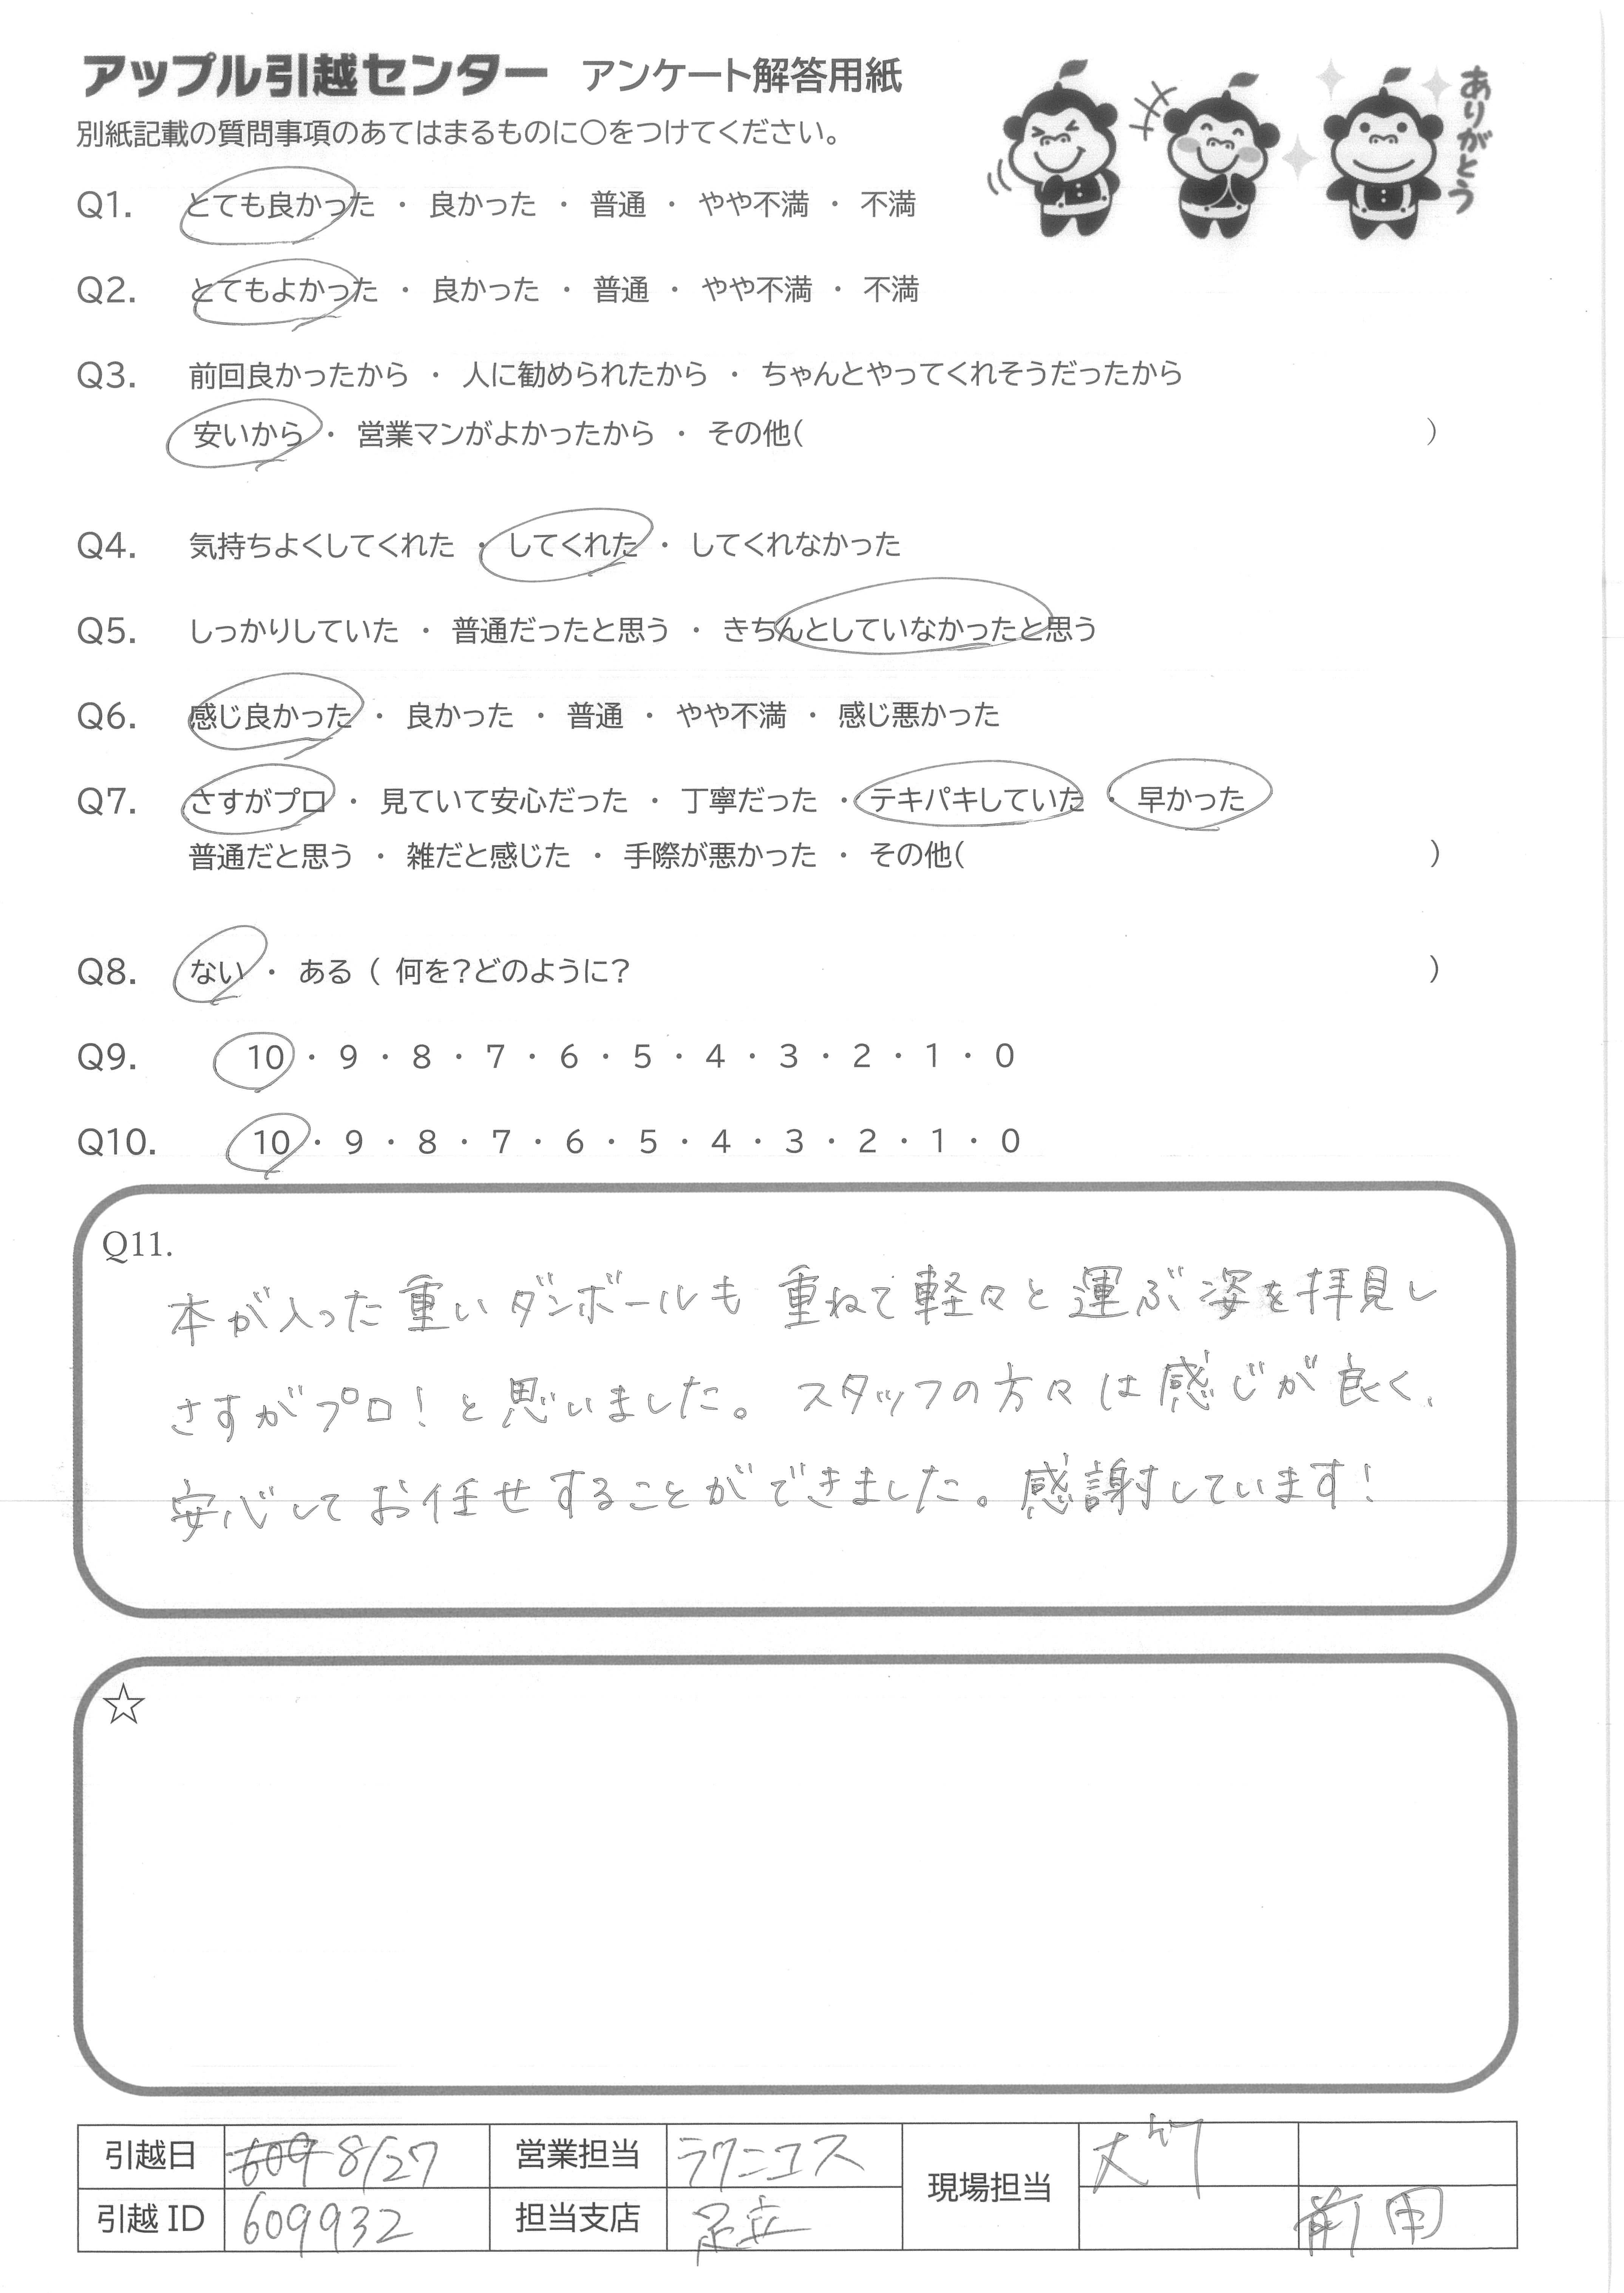 アップル引越センター アンケート解答用紙
ありがとう
別紙記載の質問事項のあてはまるものに〇をつけてください。
Q1. とても良かった ・ 良かった ・ 普通 ・ やや不満 ・ 不満
Q2. とてもよかった ・ 良かった ・ 普通 ・ やや不満 ・ 不満
Q3. 前回良かったから ・ 人に勧められたから ・ ちゃんとやってくれそうだったから
安いから ・ 営業マンがよかったから ・ その他( )
Q4. 気持ちよくしてくれた ・ してくれた ・ してくれなかった
Q5. しっかりしていた ・ 普通だったと思う ・ きちんとしていなかったと思う
Q6. 感じ良かった ・ 良かった ・ 普通 ・ やや不満 ・ 感じ悪かった
Q7. さすがプロ ・ 見ていて安心だった ・ 丁寧だった ・ テキパキしていた ・ 早かった
普通だと思う ・ 雑だと感じた ・ 手際が悪かった ・ その他( )
Q8. ない ・ ある ( 何を?どのように? )
Q9. 10 ・ 9 ・ 8 ・ 7 ・ 6 ・ 5 ・ 4 ・ 3 ・ 2 ・ 1 ・ 0
Q10. 10 ・ 9 ・ 8 ・ 7 ・ 6 ・ 5 ・ 4 ・ 3 ・ 2 ・ 1 ・ 0
Q11.
本が入った重いダンボールも重ねて軽々と運ぶ姿を拝見し
さすがプロ！と思いました。スタッフの方々は感じが良く、
安心してお任せすることができました。感謝しています！
☆
引越日 609 8/27 営業担当 ラクニコス 現場担当
引越 ID 609932 担当支店 足立 前田